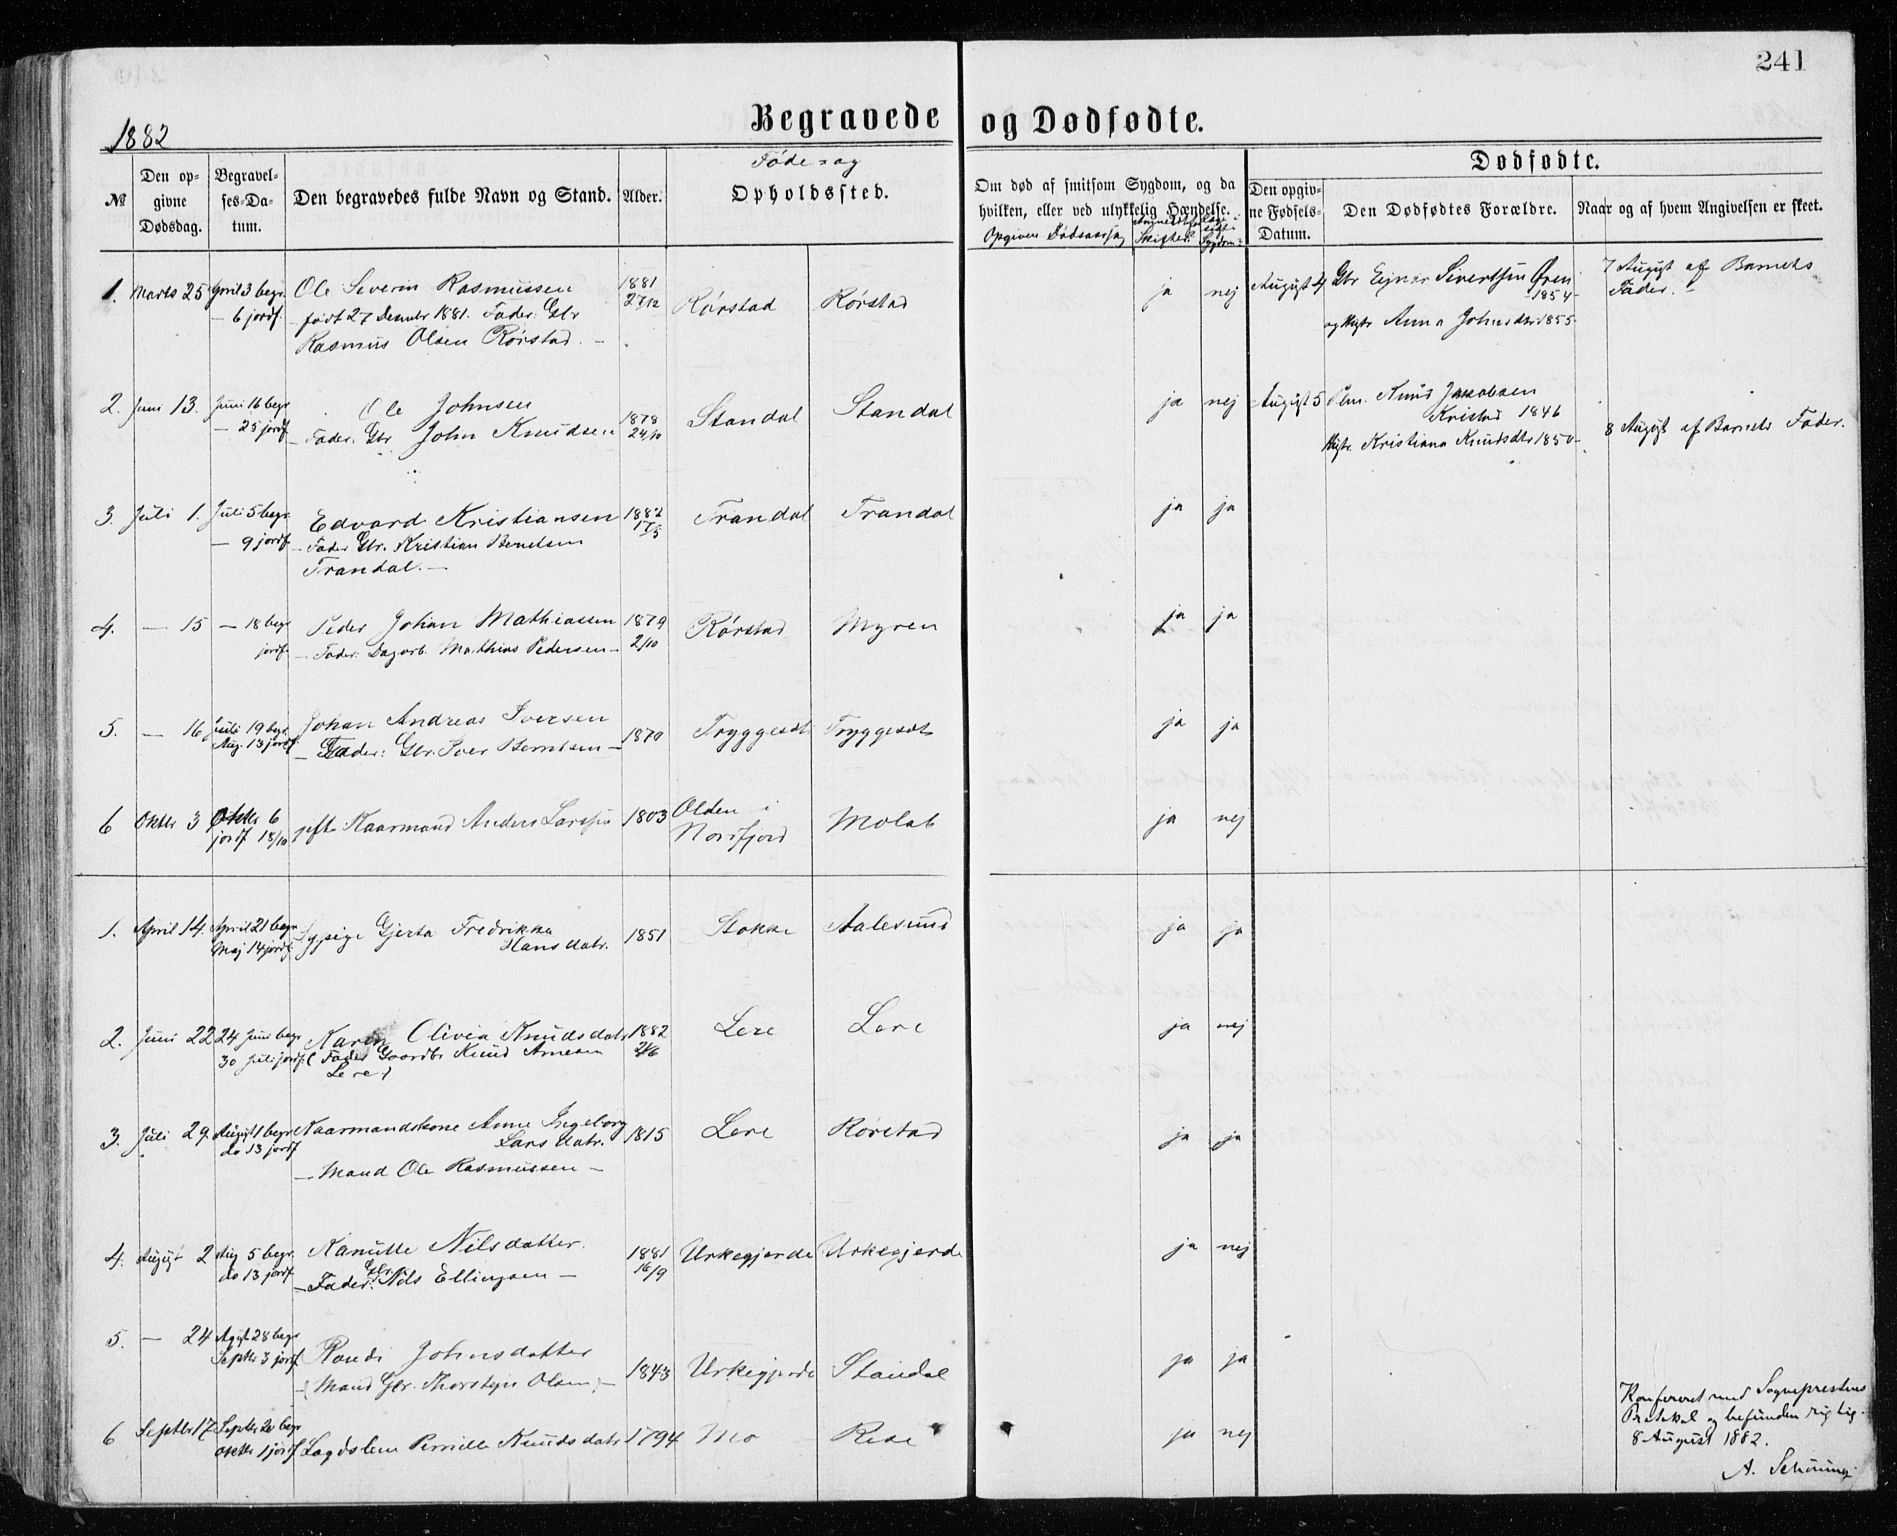 241
Begravede og Dødfødte.
1882
№
Den opgivne Dødsdag.
Begravelses-Datum.
Den begravedes fulde Navn og Stand.
Alder.
Føde- og
Opholdssted.
Om død af smitsom Sygdom, og da
hvilken, eller ved ulykkelig Hændelse.
Opgiven Dødsaarsag
Dødfødte.
Den opgivne Fødsels-Datum.
Den Dødfødtes Forældre.
Naar og af hvem Angivelsen er skeet.
1. Marts 25 April 3 begr. Ole Severin Rasmussen 1881 27/12 Rørstad Rørstad ja nej
— 6 jordf. født 27 Decembr 1881. Fader: Gbr
Rasmus Olsen Rørstad. —
August 4 Gbr Ejnar Sivertsen Øren
- 1854 -
og Hustr. Anna Johnsdtr 1855
7 August af Barnets
Fader. —
2. Juni 13. Juni 16 begr. Ole Johnsen 1878 24/10 Standal Standal ja nej
— 25 jordf. — Fader: Gbr John Knudsen
August 5 Knud Jakobsen
1846
Hustr. Kristiana Knudsdtr 1850 -
8 August af Barnets Fader.
3. Juli 1. Juli 5 begr. Edvard Kristiansen 1882 17/5 Trandal Trandal ja ja
— 9 jordf. — Fader Gbr. Kristian Berntsen
Trandal. —
4. — 15 — 18 begr. Peder Johan Mathiassen 1879 2/10 Rørstad Myren ja ja
jordf. — Fader: Dagarb. Mathias Pedersen —
5. — 16 Juli 19 begr. Johan Andreas Iversen 1870 Tryggesdt Tryggesdt ja ja
Aug. 13 jordf. — Fader: Gbr. Iver Berntsen —
6 Oktbr 3 Oktbr 6 gift Kaarmand Anders Larssen 1803 Olden i Nordfjord Molat ja nej
jordf 18/10
1. April 14. April 21 begr. Gjerta Fredrikka 1851 Stokke Aalesund ja ja
Maj 14 jordf. Hansdatr.
2. Juni 22 24 Juni begr. Karen Olivia Knudsdatr 1882 2/6 Lere Lere ja nej
30 Juli jordf. (Fader Gaardbr Knud Arnesen
Lere)
3. Juli 29. August 1 begr. Kaarmandskone Anne Ingeborg 1815 Lere Rørstad ja ja
do 13 jordf. Larsdatr.
— Mand Ole Rasmussen —
4. August 2 Aug 5 begr. Kanutte Nilsdatter. 1881 16/9 Urkegjerde Urkegjerde ja nej
do 13 jordf. — Fader: Gbr. Nils Ellingsen —
5. — 24 Agust 28 begr. Randi Johnsdatter 1843 Urkegjerde Standal ja ja
Septbr 3 jordf. — (Mand Gbr. Thorstein Olsen) —
6 Septbr 17 Septbr 20 begr. Lægdslem Pernille Knudsdatr 1794 Mo Rese ja nej
Oktbr 1 jordf.
Konfereret med Sognepræstens
Protokol og befunden rigtig.
8 August 1882.
A. Schiøning